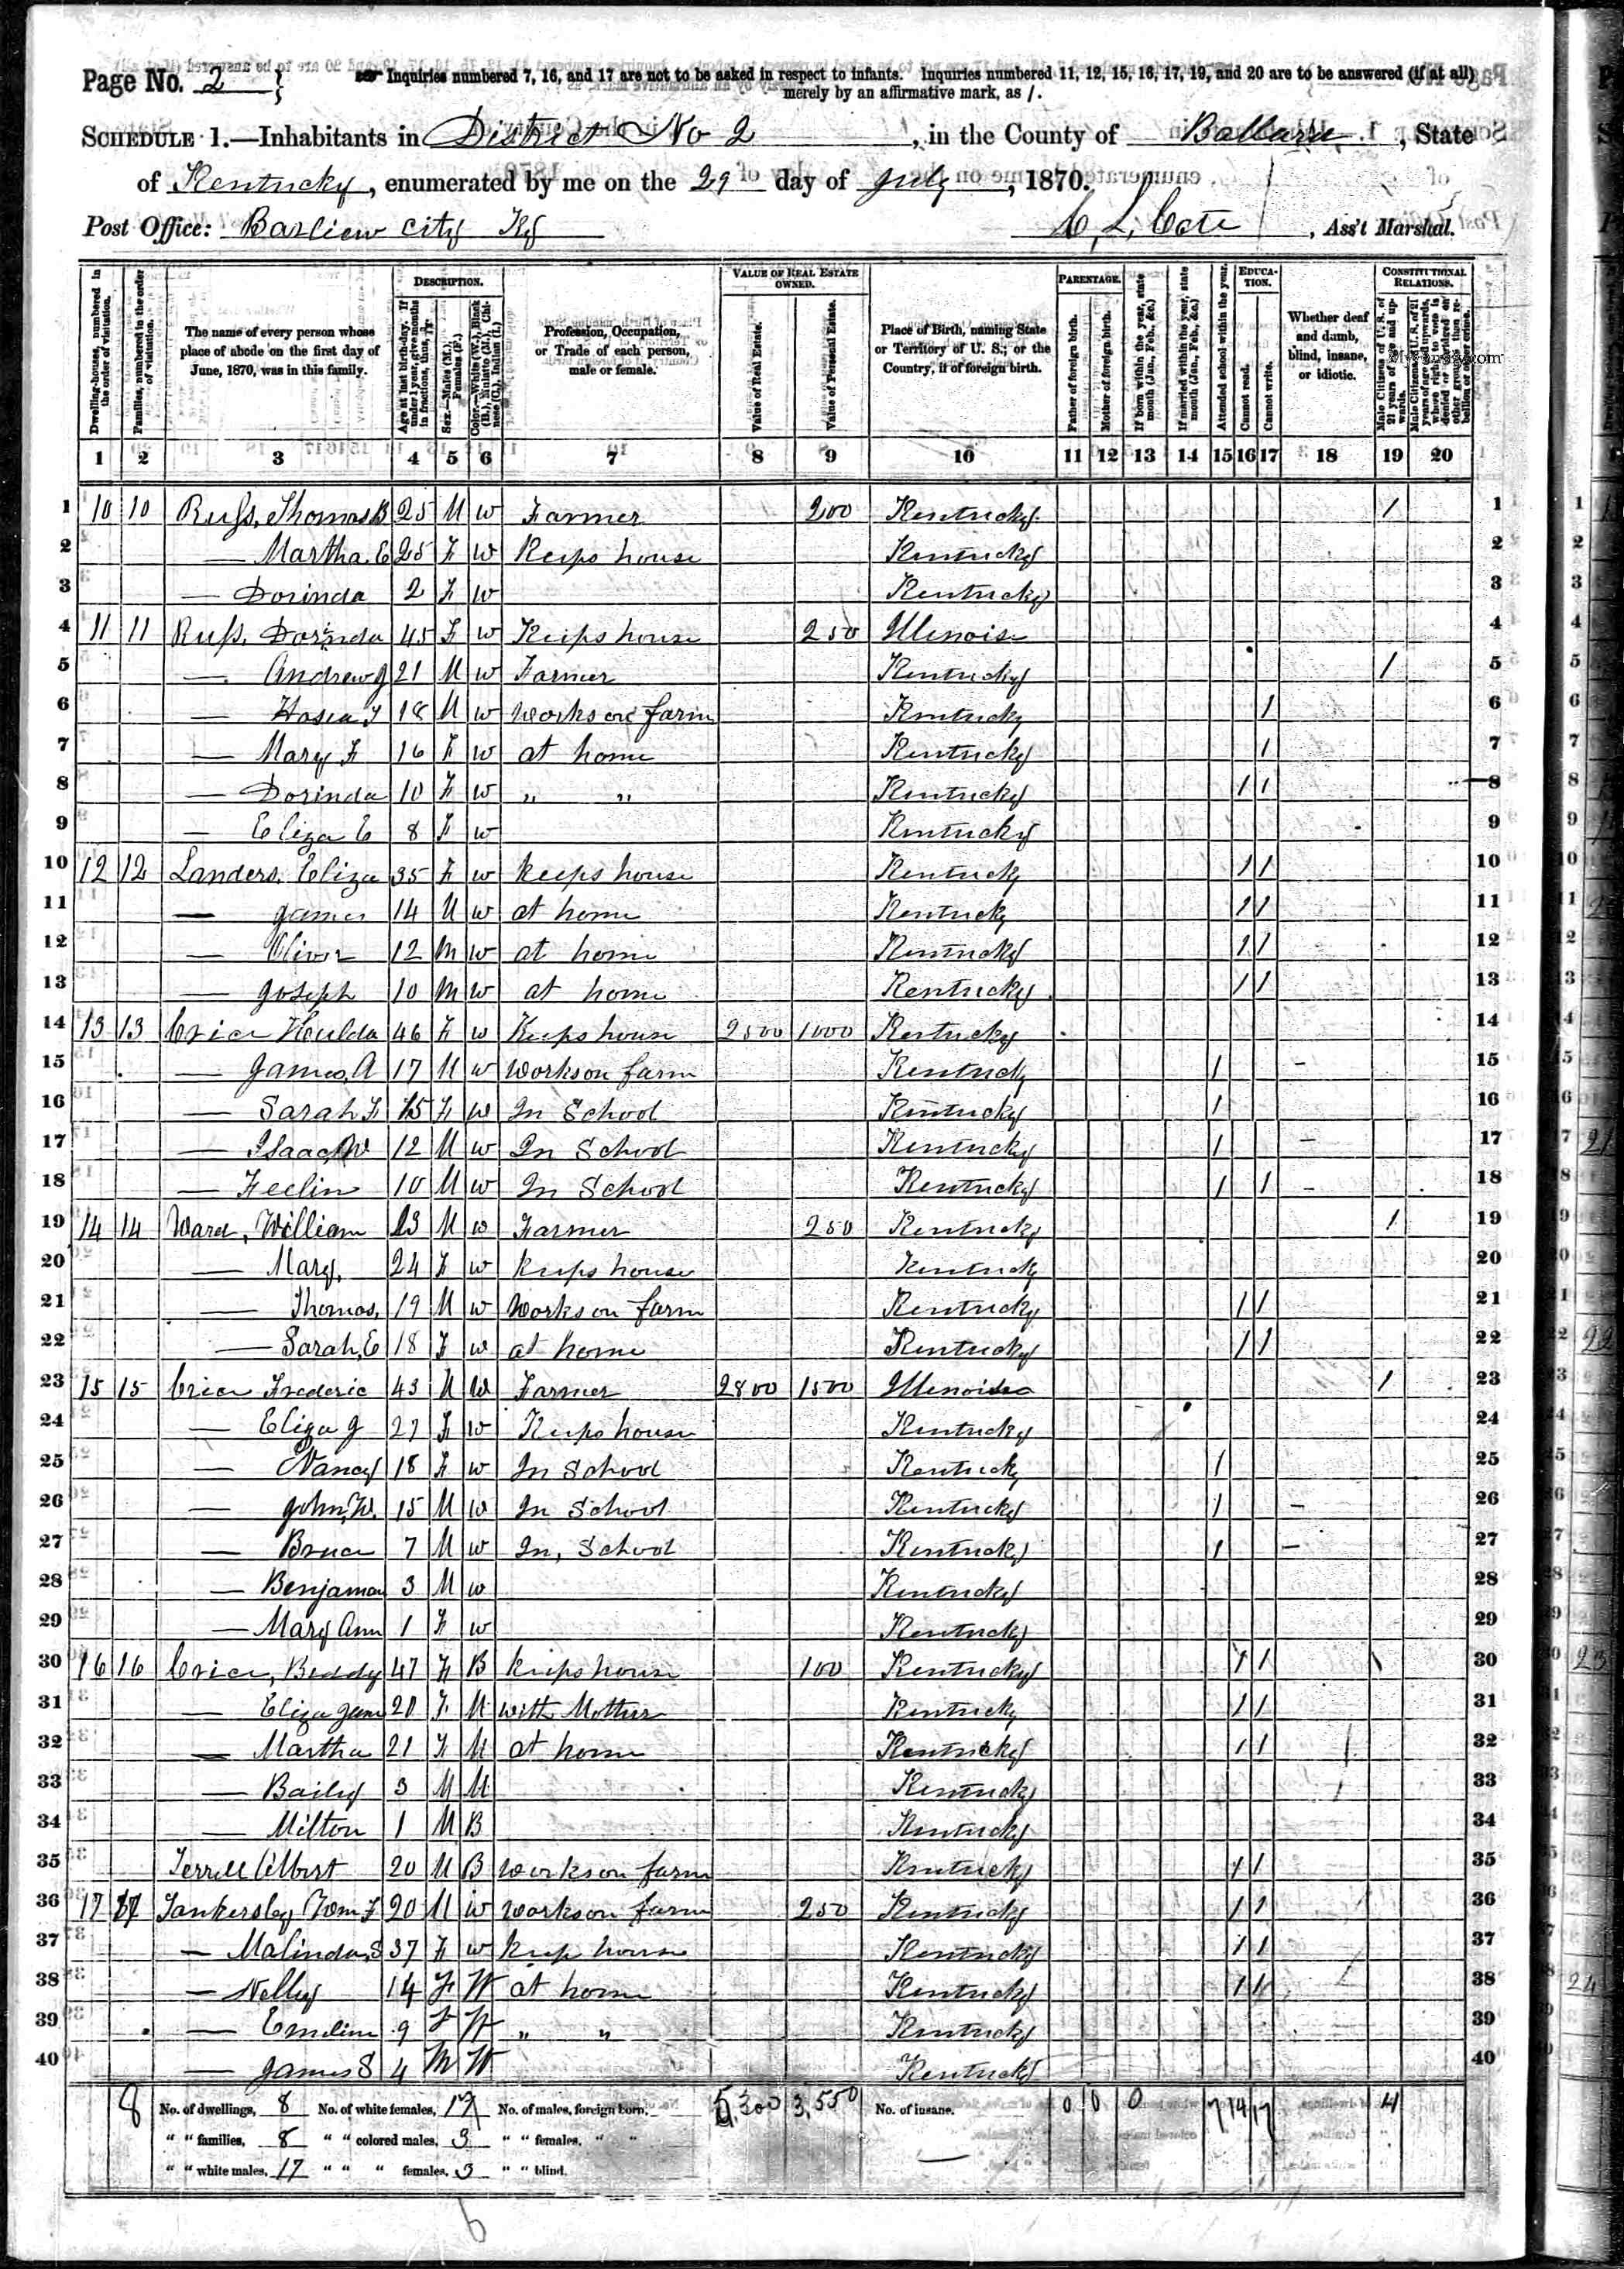 Page No. 2 } Inquiries numbered 7, 16, and 17 are not to be asked in respect to infants. Inquiries numbered 11, 12, 15, 16, 17, 19, and 20 are to be answered (if at all)
merely by an affirmative mark, as /.
SCHEDULE 1.—Inhabitants in District No 2, in the County of Ballard, State
of Kentucky, enumerated by me on the 29 day of July, 1870.
Post Office: Barliew City Ky C. L. Cate, Ass't Marshal.
Dwelling-houses, numbered in the order of visitation.
Families, numbered in the order of visitation.
The name of every person whose place of abode on the first day of June, 1870, was in this family.
DESCRIPTION.
Age at last birth-day. If under 1 year, give months in fractions, thus,
Sex.—Males (M.), Females (F.)
Color.—White (W.), Black (B.), Mulatto (M.), Chinese (C.), Indian (I.)
Profession, Occupation, or Trade of each person, male or female.
VALUE OF REAL ESTATE OWNED.
Value of Real Estate.
Value of Personal Estate.
Place of Birth, naming State or Territory of U. S.; or the Country, if of foreign birth.
PARENTAGE.
Father of foreign birth.
Mother of foreign birth.
If born within the year, state month (Jan., Feb., &c.)
If married within the year, state month (Jan., Feb., &c.)
Attended school within the year.
EDUCATION.
Cannot read.
Cannot write.
Whether deaf and dumb, blind, insane, or idiotic.
CONSTITUTIONAL RELATIONS.
Male Citizens of U. S. of 21 years of age and upwards.
Male Citizens of U. S. of 21 years of age and upwards, where right to vote is denied or abridged on other grounds than rebellion or other crime.
1 2 3 4 5 6 7 8 9 10 11 12 13 14 15 16 17 18 19 20
1 10 10 Russ, Thomas B 25 M W Farmer 200 Kentucky / 1
2 — Martha E 25 F W Keeps house Kentucky 2
3 — Dorinda 2 F W Kentucky 3
4 11 11 Russ, Dorinda 45 F W Keeps house 250 Illenoise 4
5 — Andrew J 21 M W Farmer Kentucky / 5
6 — Hosea 18 M W works on farm Kentucky / 6
7 — Mary F 16 F W at home Kentucky / 7
8 — Dorinda 10 F W " " Kentucky / / 8
9 — Eliza E 8 F W Kentucky 9
10 12 12 Landers, Eliza 35 F W keeps house Kentucky / / 10
11 — James 14 M W at home Kentucky / / 11
12 — Oliver 12 M W at home Kentucky / / 12
13 — Joseph 10 M W at home Kentucky / / 13
14 13 13 Crice Hulda 46 F W Keeps house 2500 1000 Kentucky 14
15 — James, A 17 M W works on farm Kentucky / 15
16 — Sarah F 15 F W In School Kentucky / 16
17 — Isaac W 12 M W In School Kentucky / 17
18 — Feelin 10 M W In School Kentucky / / 18
19 14 14 Ward, William 23 M W Farmer 250 Kentucky / 19
20 — Mary, 24 F W keeps house Kentucky 20
21 — Thomas, 19 M W Works on farm Kentucky / / 21
22 — Sarah, E 18 F W at home Kentucky / / 22
23 15 15 Crice Frederic 43 M W Farmer 2800 1500 Illenoise / 23
24 — Eliza J 27 F W Keeps house Kentucky 24
25 — Nancy 18 F W In School Kentucky / 25
26 — John, W. 15 M W In School Kentucky / 26
27 — Bruce 7 M W In, School Kentucky / 27
28 — Benjaman 3 M W Kentucky 28
29 — Mary Ann 1 F W Kentucky 29
30 16 16 Crice, Biddy 47 F B keeps house 100 Kentucky / / 30
31 — Eliza Jane 20 F M with Mother Kentucky / / 31
32 — Martha 21 F M at home Kentucky / / 32
33 — Baily 3 M M Kentucky 33
34 — Milton 1 M B Kentucky 34
35 Terrell Albert 20 M B works on farm Kentucky / / 35
36 17 17 Tankersley Wm F 20 M W works on farm 250 Kentucky / / 36
37 — Malinda, S 37 F W keep house Kentucky / / 37
38 — Nelly 14 F W at home Kentucky / / 38
39 — Emeline 9 F W " " Kentucky 39
40 — James S 4 M W Kentucky 40
8 No. of dwellings, 8 No. of white females, 17 No. of males, foreign born, 5,300 3,550 No. of insane. 0 0 0 7 14 17 4
" " families, 8 " " colored males, 3 " " females, " "
" " white males, 17 " " " females, 3 " " blind.
6